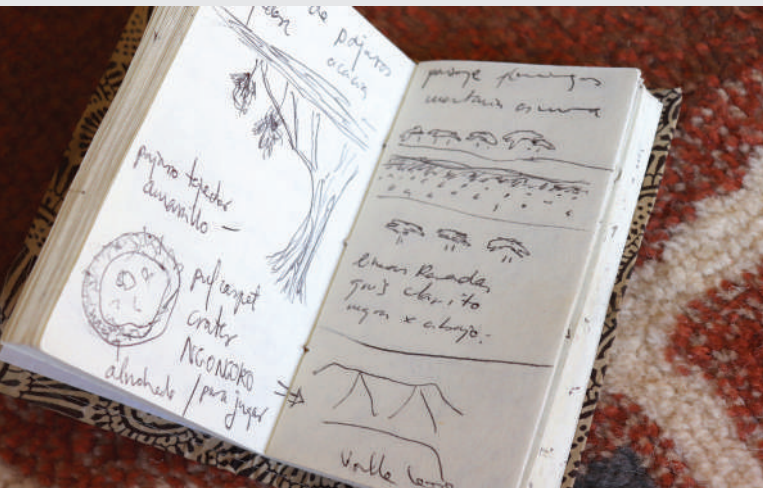 de pájaros
acacia
pajaro tejedor
amarillo —
puf carpet
crater
NGONGORO
almohada / para jugar
paisaje flamengos
montaña oscura
gris clarito
negra x abajo.